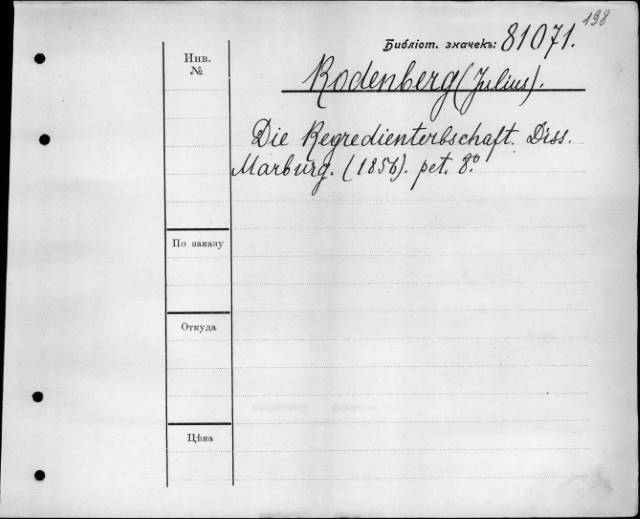 198
Библіот. значекъ: 81071.
Инв.
№
Rodenberg (Julius).
Die Regredienterbschaft. Diss.
Marburg. (1856). pet. 8º.
По заказу
Откуда
Цѣна